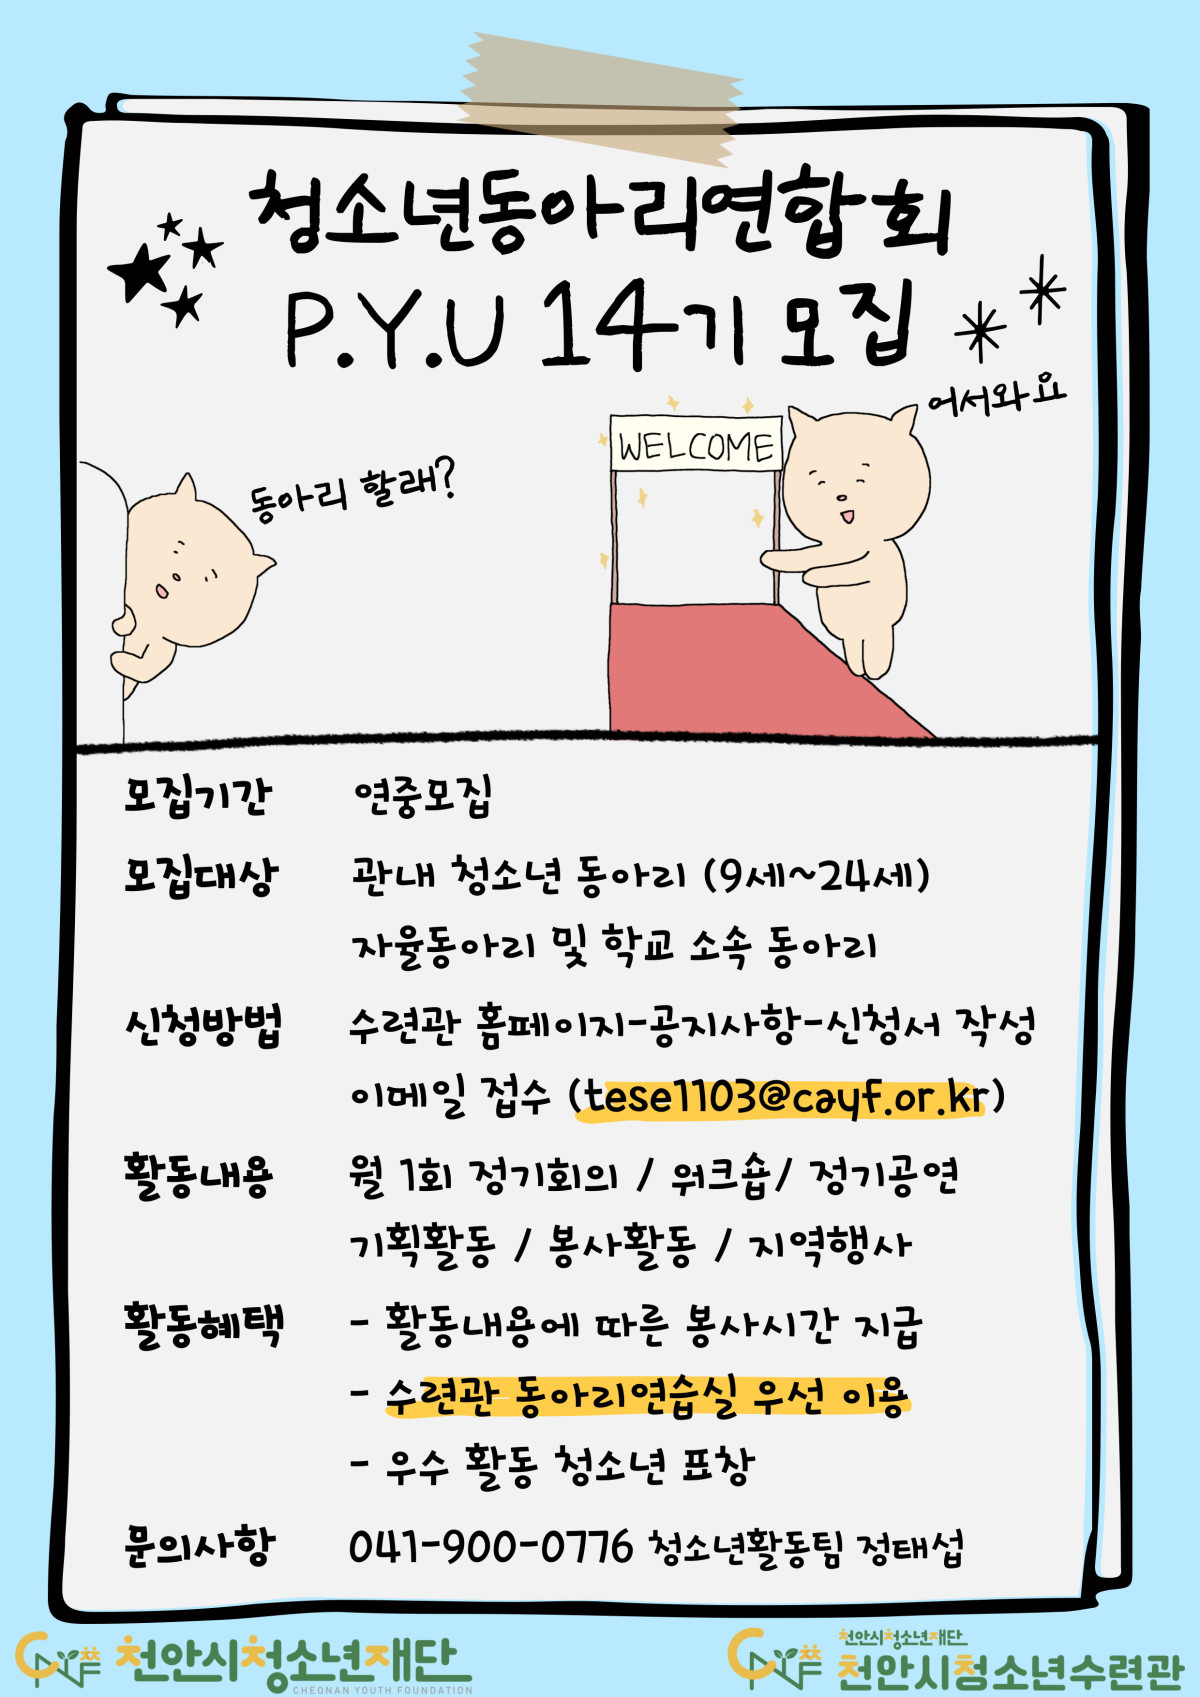 청소년동아리연합회
P.Y.U 14기 모집
어서와요
WELCOME
동아리 할래?
모집기간 연중모집
모집대상 관내 청소년 동아리 (9세~24세)
자율동아리 및 학교 소속 동아리
신청방법 수련관 홈페이지-공지사항-신청서 작성
이메일 접수 (tese1103@cayf.or.kr)
활동내용 월 1회 정기회의 / 워크숍/ 정기공연
기획활동 / 봉사활동 / 지역행사
활동혜택 - 활동내용에 따른 봉사시간 지급
- 수련관 동아리연습실 우선 이용
- 우수 활동 청소년 표창
문의사항 041-900-0776 청소년활동팀 정태섭
CYF 천안시청소년재단
CHEONAN YOUTH FOUNDATION
CYF 천안시청소년재단
천안시청소년수련관